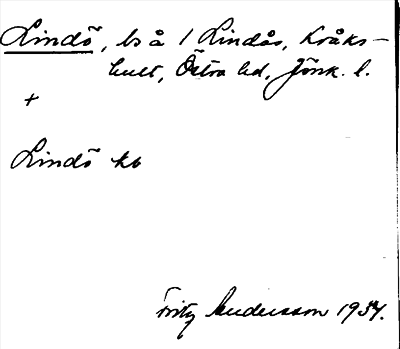 Lindö, ls å 1 Lindås, Kråks-
hult, Östra hd, Jönk. l.
+
Lindö kb
Fritz Andersson 1934.